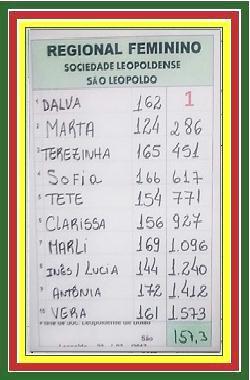 REGIONAL FEMININO
SOCIEDADE LEOPOLDENSE
SÃO LEOPOLDO
1 DALVA 162 1
2 MARTA 124 286
3 TEREZINHA 165 451
4 SOFIA 166 617
5 TETE 154 771
6 CLARISSA 156 927
7 MARLI 169 1.096
8 INÊS/LUCIA 144 1.240
9 ANTÔNIA 172 1.412
10 VERA 161 1.573
São
157,3